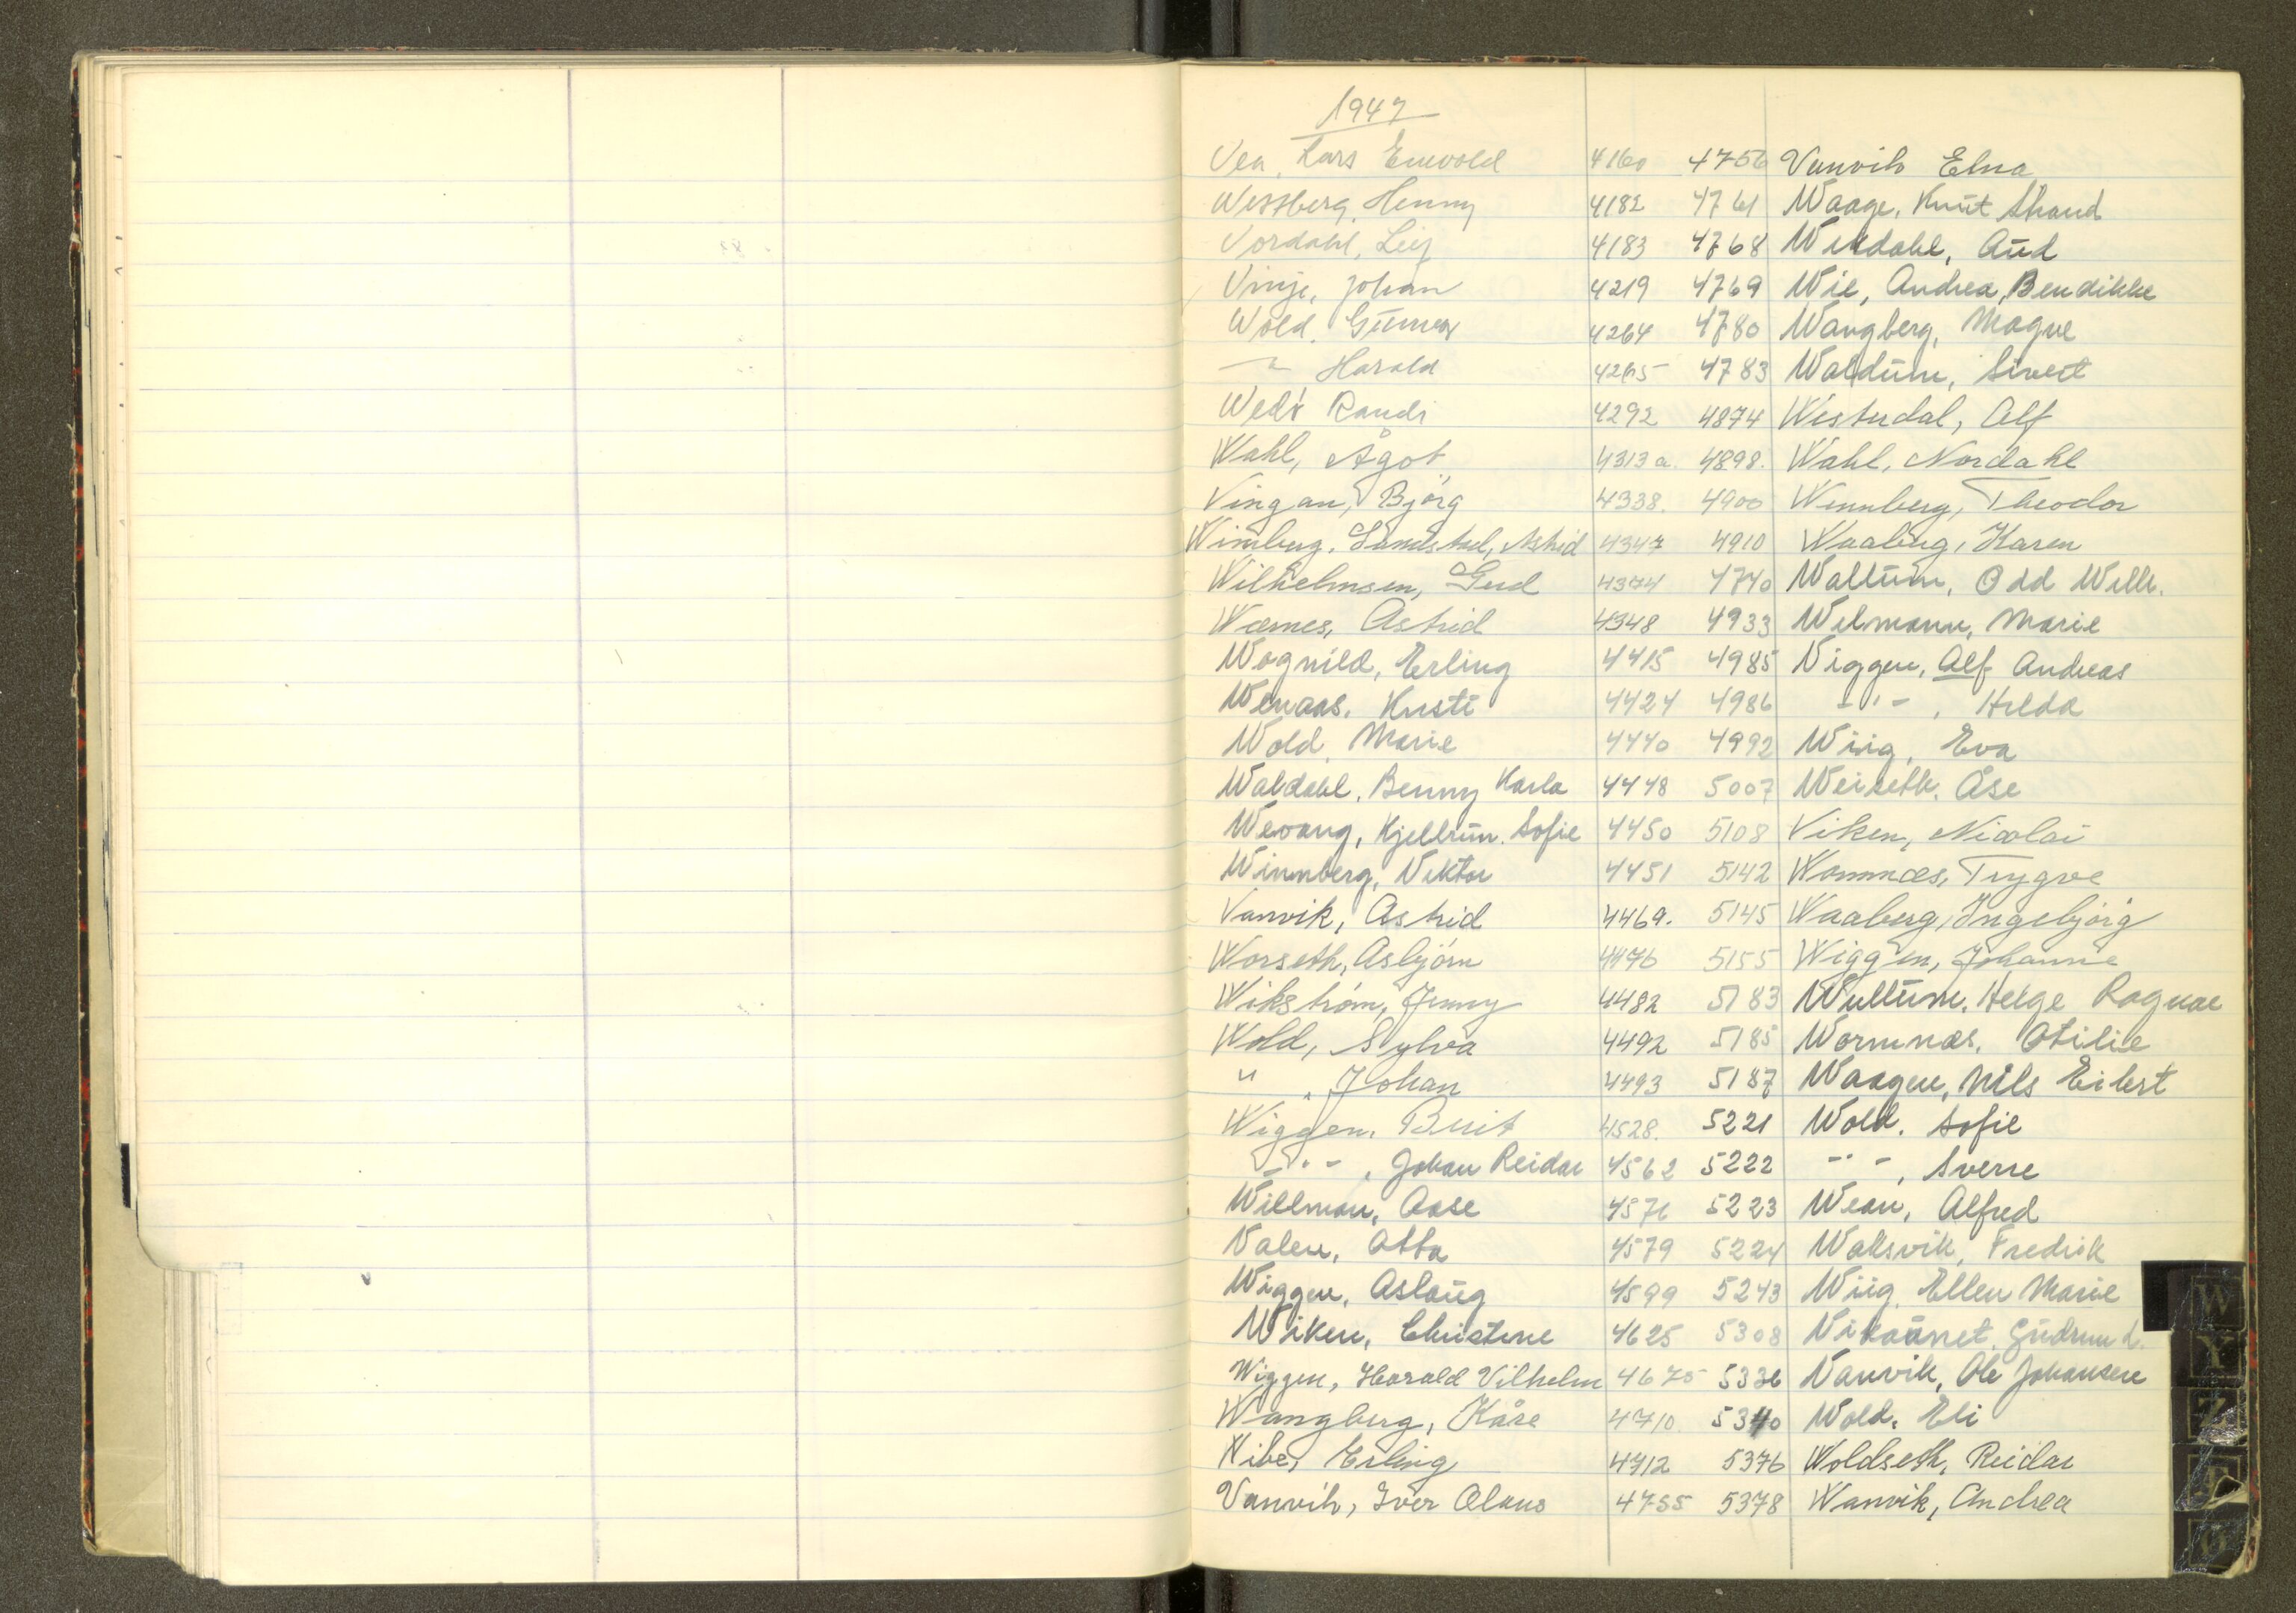 1947
Vea, Lars Enevold 4160 4756 Vanvik Elna
Wessberg, Henny 4182 4761 Waage, Knut Strand
Vordahl, Leif 4183 4768 Wikdahl, Aud
Vinje, Johan 4219 4769 Wie, Andrea, Bendikke
Wold, Gunnar 4264 4780 Wangberg, Magne
" Harald 4265 4783 Waldum, Sivert
Wedø Randi 4292 4874 Westerdal, Alf
Wahl, Ågot 4313a 4898. Wahl, Nordahl
Vingan, Björg 4338. 4900 Wennberg, Theodor
Winnberg. Sandstad, Astrid 4347 4910 Waaberg, Karen
Wilhelmsen, Gerd 4374 4740 Wallum, Odd Wilh.
Wærnes, Astrid 4348 4933 Welmann, Marie
Wognild, Erling 4415 4985 Viggen, Alf Andreas
Wenaas. Kirsti 4424 4986 - " - , Hilda
Wold, Marie 4440 4992 Wiig, Eva
Waldahl, Benny Karla 4448 5007 Weiseth. Åse
Wevang, Kjellrun. Sofie 4450 5108 Viken, Nicolai
Winnberg, Viktor 4451 5142 Wormnæs, Trygve
Vanvik, Astrid 4469. 5145 Waaberg, Ingebjörg
Worseth, Asbjörn 4476 5155 Wiggen, Johanne
Wikström, Jenny 4482 5183 Wullum. Helge Ragnar
Wold, Sylva 4492 5185 Wormnæs. Otilie
" , Johan 4493 5187 Waagen, Nils Eilert
Wiggen, Brit 4528. 5221 Wold. Sofie
- " - , Johan Reidar 4562 5222 - " - , Sverre
Willman, Aase 4576 5223 Wean, Alfred
Valen, Otto 4579 5224 Waksvik, Fredrik
Wiggen, Aslaug 4599 5243 Wiig, Ellen Marie
Wiken, Christine 4625 5308 Vikaunet, Gudrun L.
Wiggen, Harald Vilhelm 4675 5336 Vanvik, Ole Johansen
Wangberg, Kåre 4710 5340 Wold, Eli
Wibe, Erling 4712 5376 Woldseth, Reidar
Vanvik, Iver Olaus 4755 5378 Wanvik, Andrea
W
Y
Z